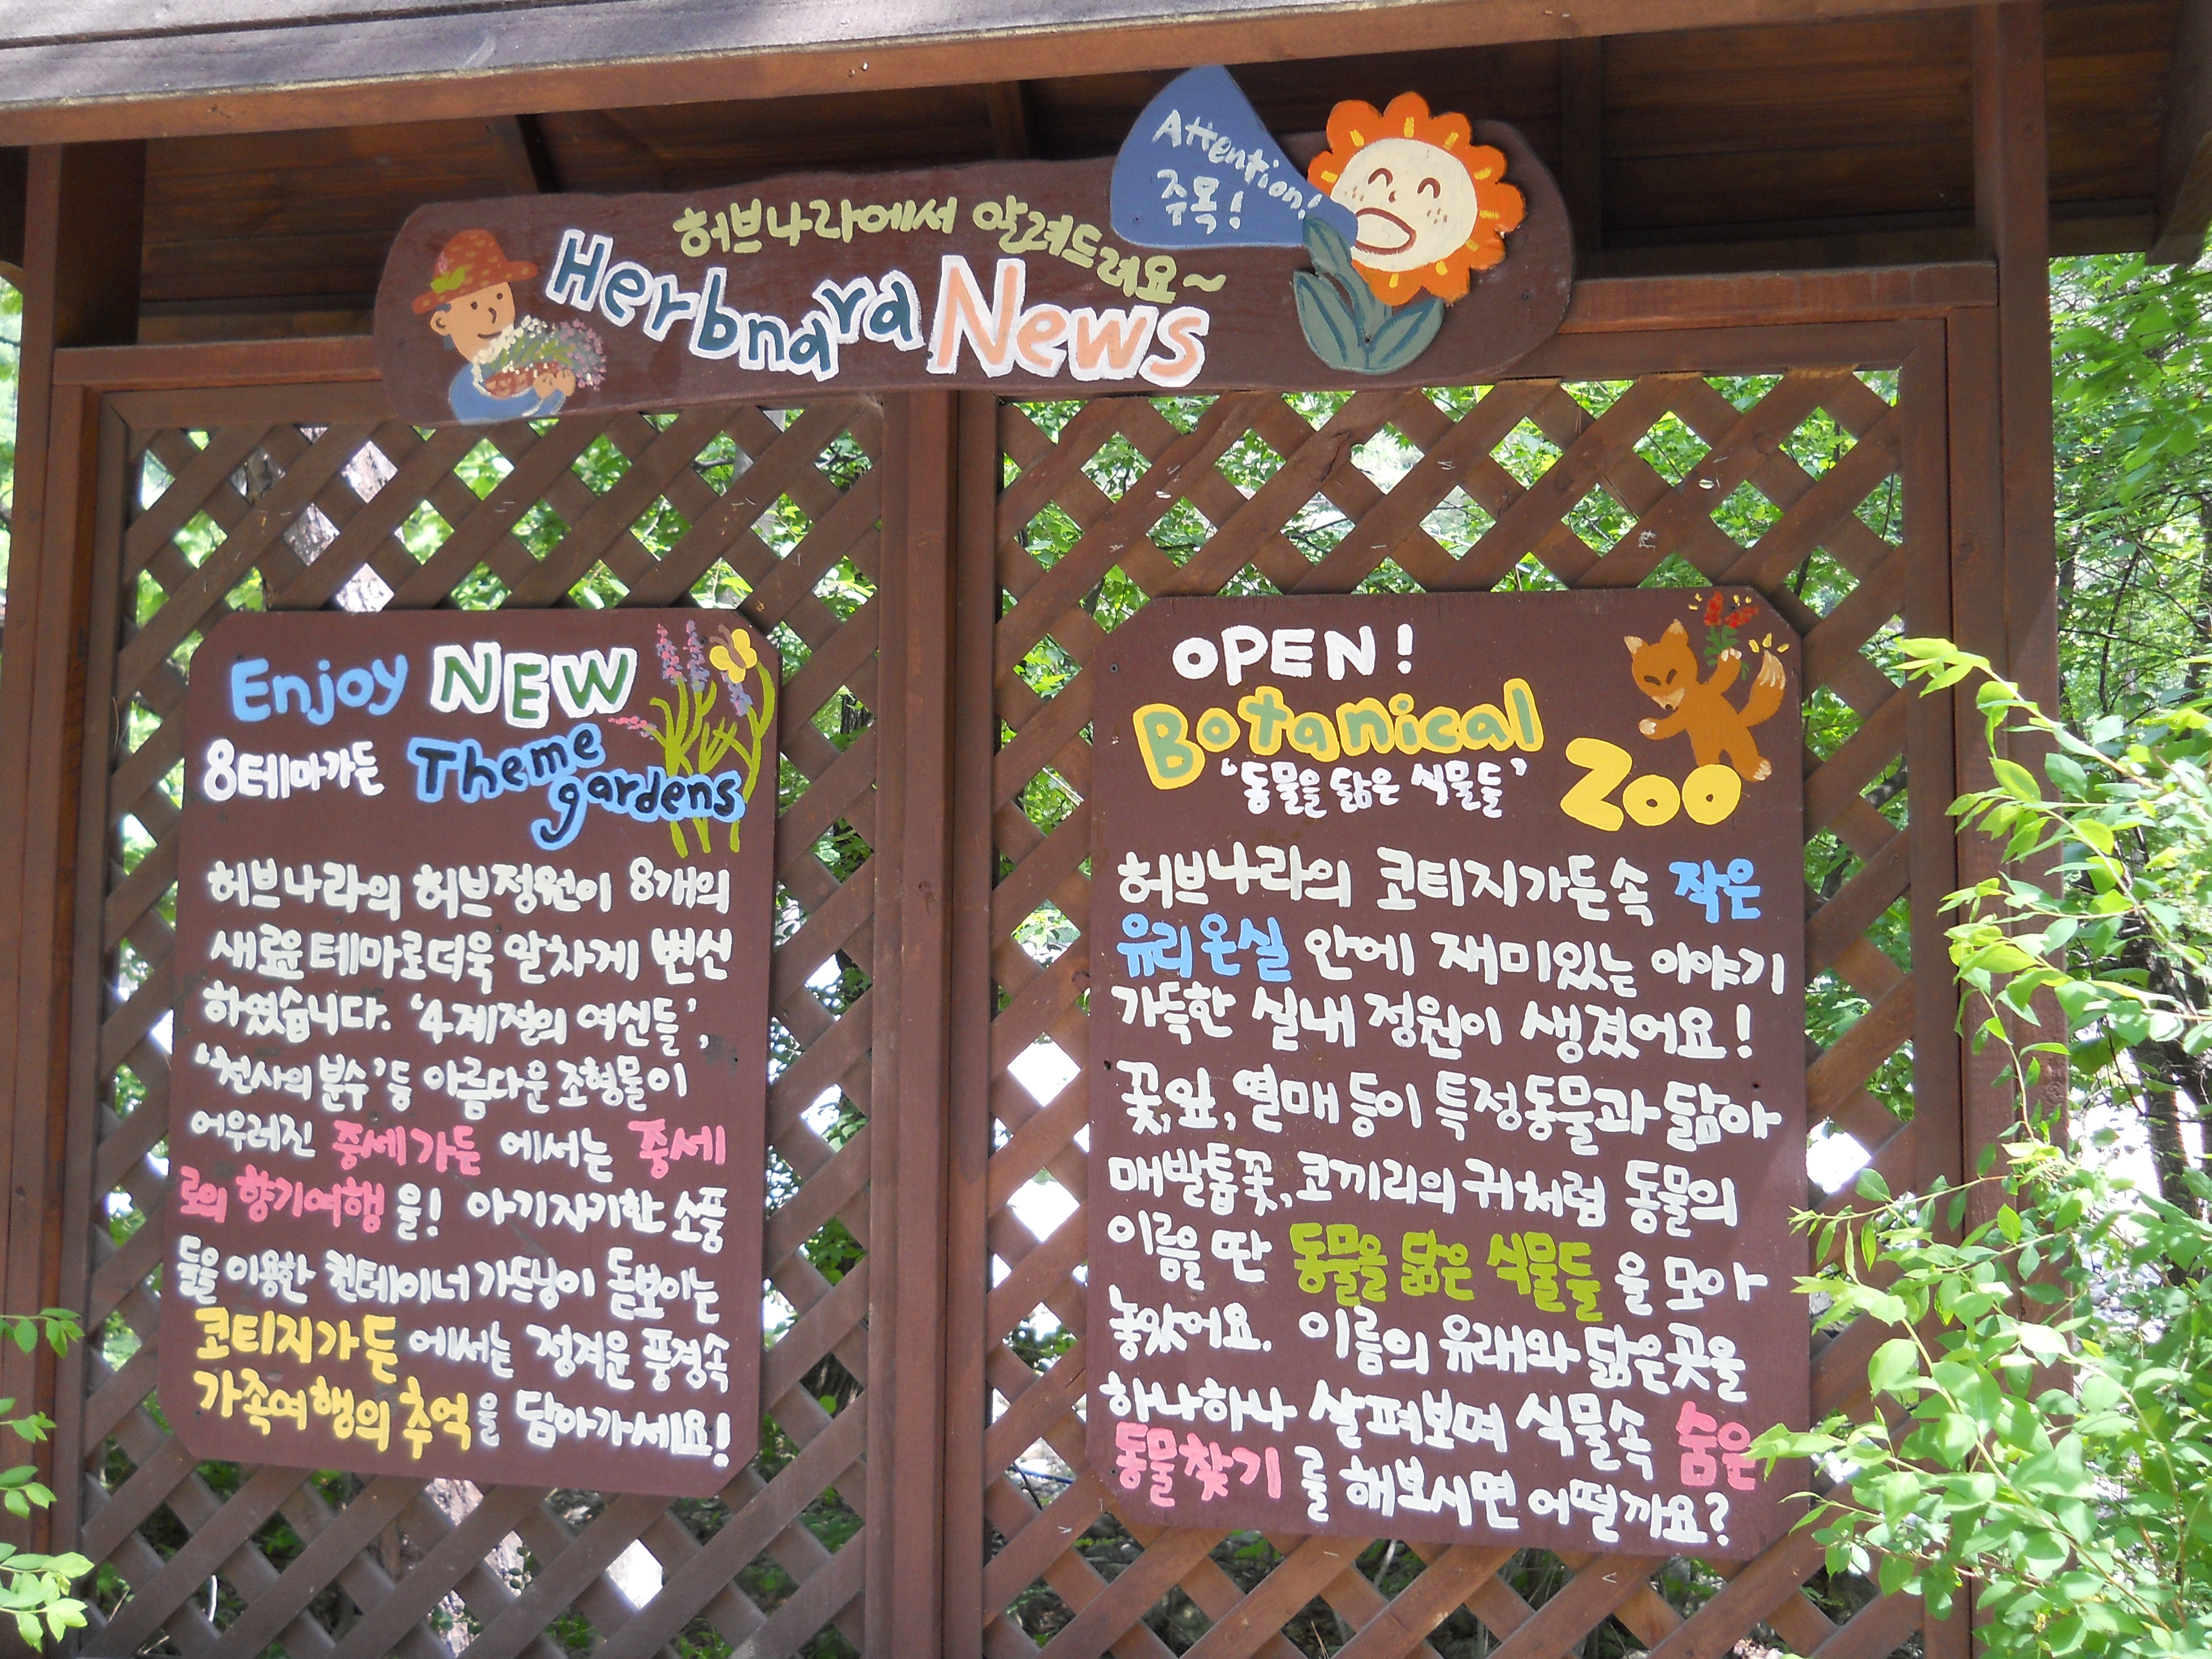 Attention!
주목!
허브나라에서 알려드려요~
Herbnara News
Enjoy NEW
8테마가든 Theme gardens
허브나라의 허브정원이 8개의
새로운 테마로 더욱 알차게 변신
하였습니다. '4계절의 여신들',
'천사의 분수'등 아름다운 조형물이
어우러진 중세가든 에서는 중세
로의 향기여행을! 아기자기한 소품
들을 이용한 컨테이너가드닝이 돋보이는
코티지가든에서는 정겨운 풍경속
가족여행의 추억을 담아가세요!
OPEN!
Botanical
'동물을 닮은 식물들' Zoo
허브나라의 코티지가든속 작은
유리온실 안에 재미있는 이야기
가득한 실내 정원이 생겼어요!
꽃,잎,열매 등이 특정동물과 닮아
매발톱꽃,코끼리의 귀처럼 동물의
이름을 딴 동물을 닮은 식물들을 모아
놓았어요. 이름의 유래와 닮은곳을
하나하나 살펴보며 식물속 숨은
동물찾기를 해보시면 어떨까요?